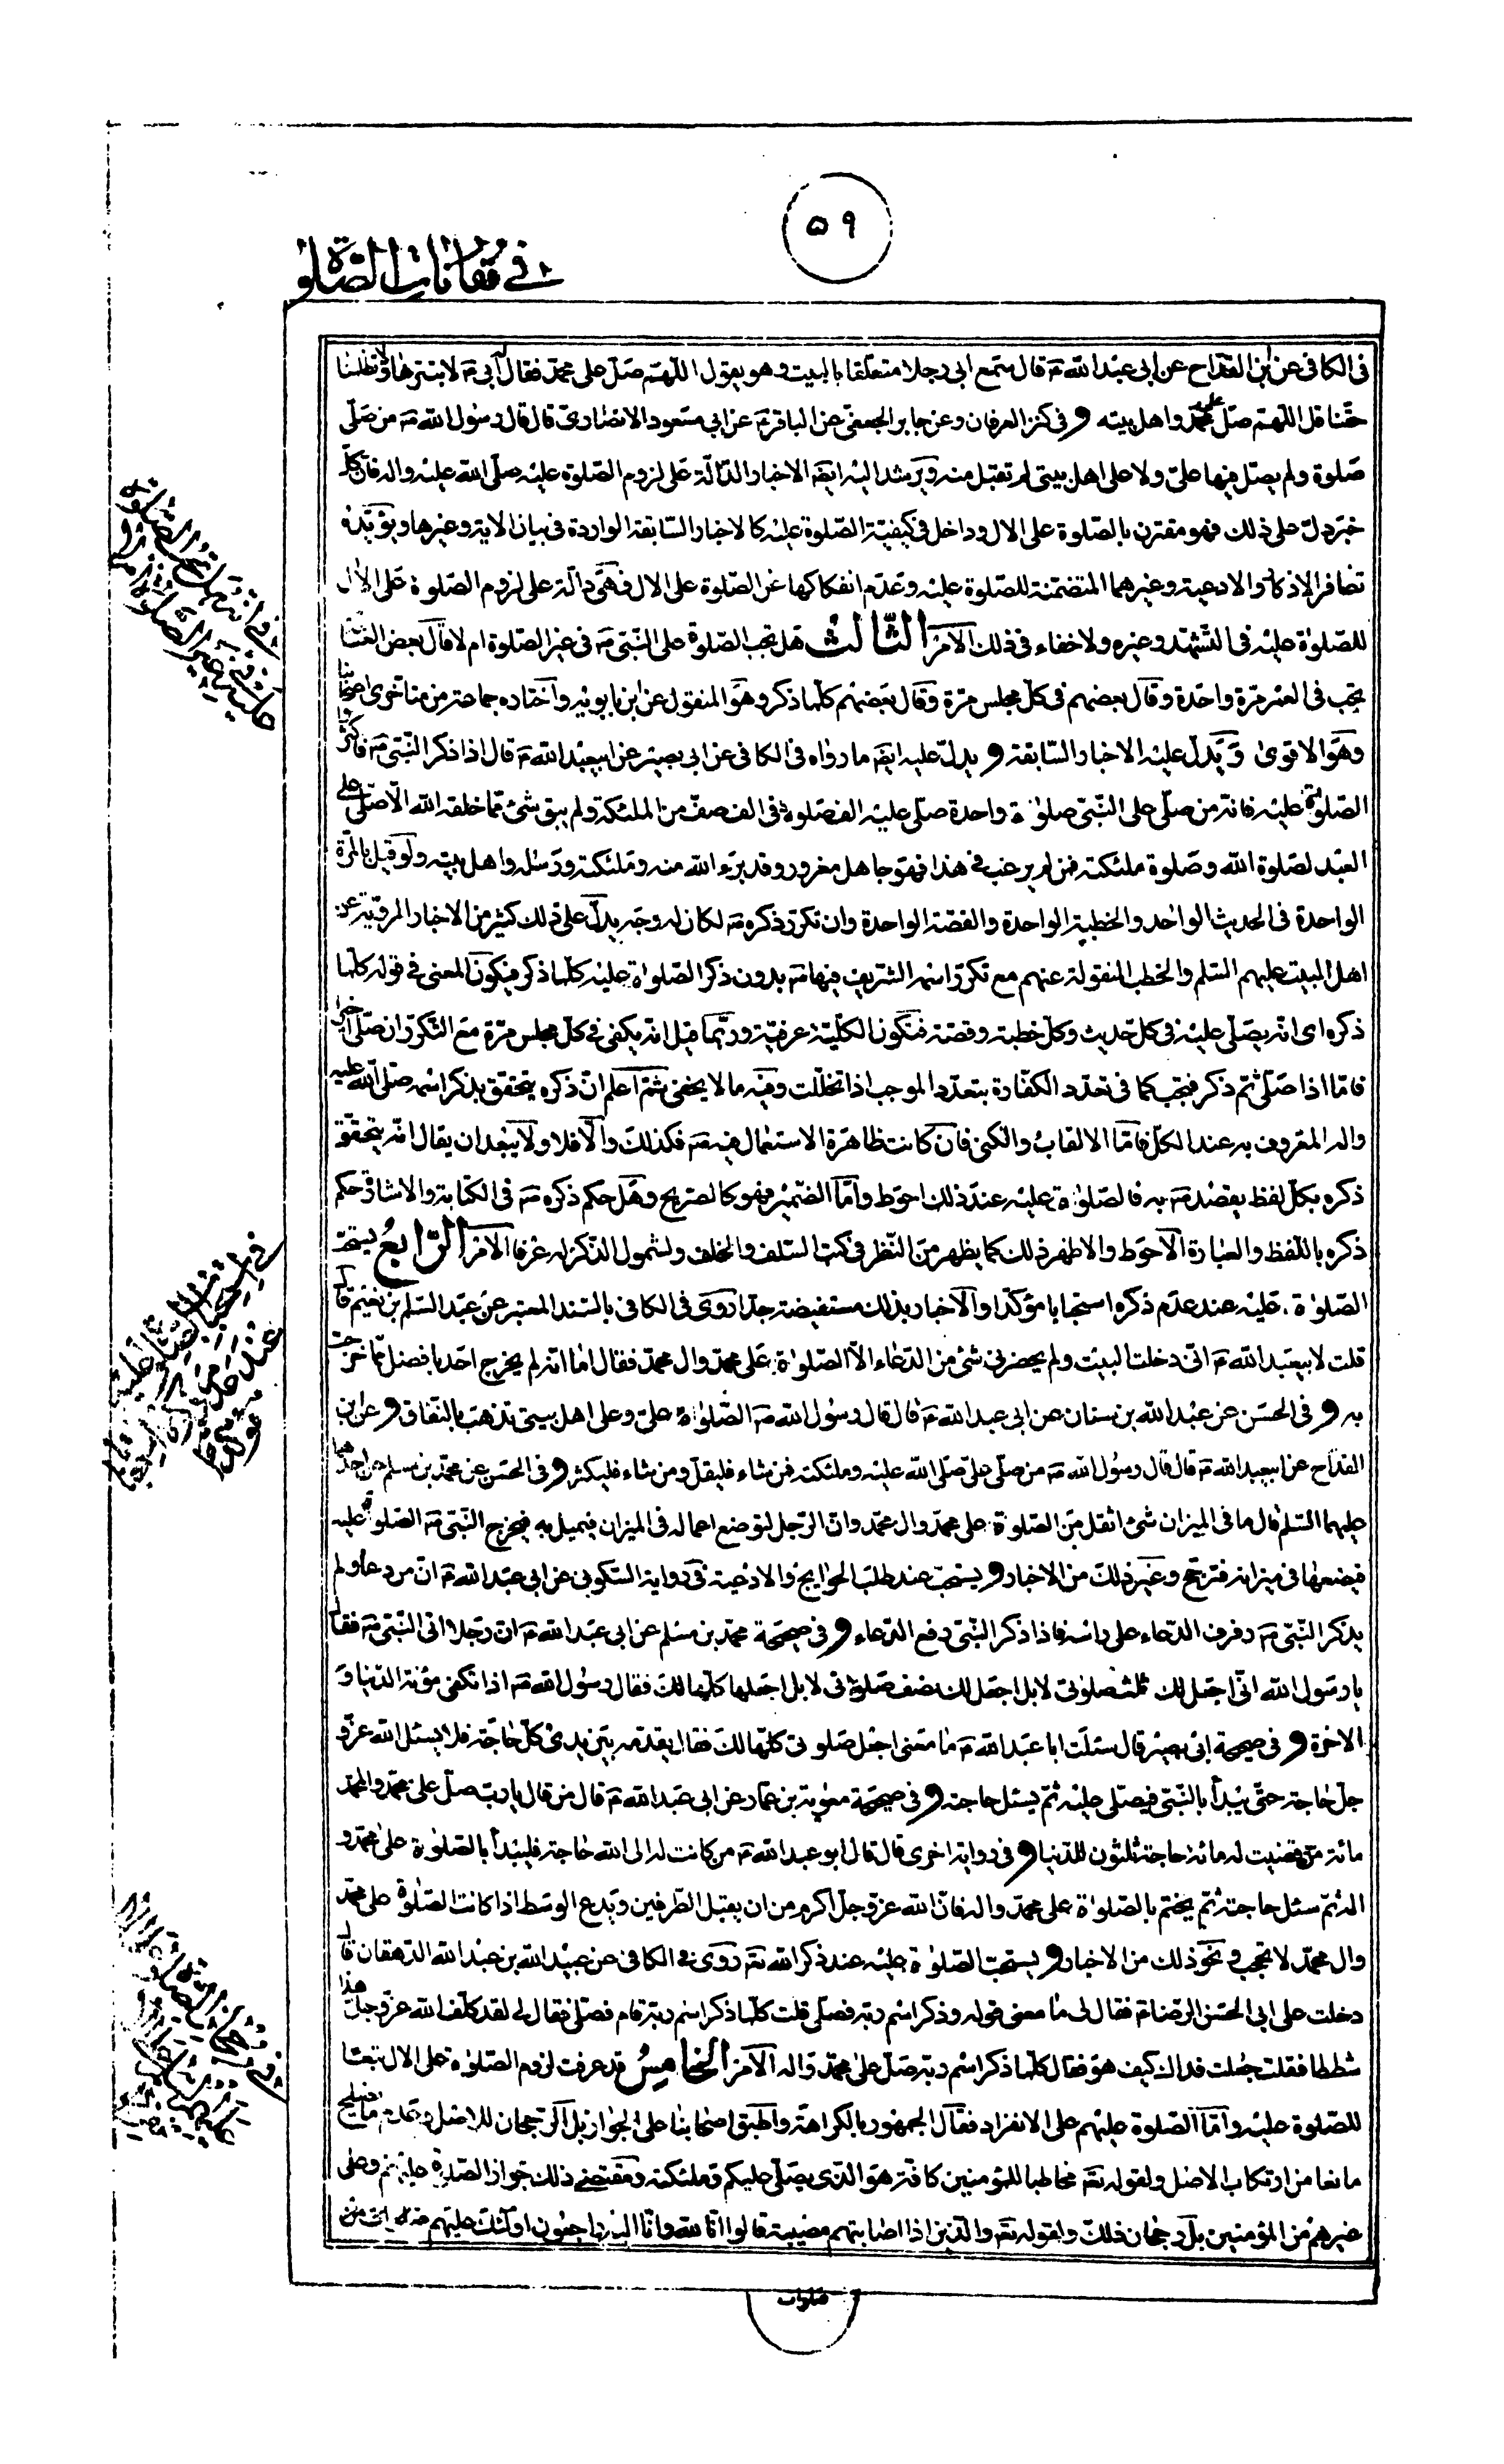 ۵۹
في مقارنات الصلوة
فى الكافى عن ابن القداح عن ابى عبد الله ع قال سمع ابى رجلا متعلقا بالبيت وهو يقول اللهم صل على محمد فقال ابى ع لا تبترها ولا تظلمنا
حقنا قل اللهم صل على محمد واهل بيته و فى كنز العرفان وعن جابر الجعفى عن الباقر ع عن ابى مسعود الانصارى قال قال رسول الله ص من صلى
صلوة ولم يصل فيها على ولا على اهل بيتى لم تقبل منه ويرشد اليه ايضا الاخبار الدالة على لزوم الصلوة عليه صلى الله عليه واله فان كل
خبر دل على ذلك فهو مقترن بالصلوة على الال وداخل فى كيفية الصلوة عليه كالاخبار السابقة الواردة فى بيان الاية وغيرها ويؤيده
تضافر الاذكار والادعية وغيرهما المتضمنة للصلوة عليه وعدم انفكاكها عن الصلوة على الال فهى دالة على لزوم الصلوة على الال
للصلوة عليه فى التشهد وغيره ولا خفاء فى ذلك الامر الثالث هل تجب الصلوة على النبى ص فى غير الصلوة ام لا قال بعض
تجب فى العمر مرة واحدة وقال بعضهم فى كل مجلس مرة وقال بعضهم كلما ذكر وهو المنقول عن ابن بابويه واختاره جماعة من متاخرى اصحابنا
وهو الاقوى ويدل عليه الاخبار السابقة و يدل عليه ايضا ما رواه فى الكافى عن ابى بصير عن ابيعبد الله ع قال اذا ذكر النبى ص فاكثروا
الصلوة عليه فانه من صلى على النبى صلوة واحدة صلى عليه الف صلوة فى الف صف من الملئكة ولم يبق شئ مما خلقه الله الا صلى على
العبد لصلوة الله وصلوة ملئكته فمن لم يرغب فى هذا فهو جاهل مغرور وقد برء الله منه وملئكته ورسله واهل بيته ولو قيل بالمرة
الواحدة فى الحديث الواحد والخطبة الواحدة والقصة الواحدة وان تكرر ذكره ص لكان له وجه يدل على ذلك كثير من الاخبار المروية عن
اهل البيت عليهم السلم والخطب المنقولة عنهم مع تكرر اسمه الشريف فيها ص بدون ذكر الصلوة عليه كلما ذكر فيكون المعنى فى قوله كلما
ذكره اى انه يصلى عليه فى كل حديث وكل خطبة وقصة فتكون الكلية عرفية وربما قيل انه يكفى فى كل مجلس مرة مع التكرر ان صلى اخرا
فاما اذا صلى ثم ذكر فتجب كما فى تعدد الكفارة بتعدد الموجب اذا تخللت وفيه ما لا يخفى ثم اعلم ان ذكره يتحقق بذكر اسمه صلى الله عليه
واله المعروف به عند الكل فاما الالقاب والكنى فان كانت ظاهرة الاستعمال فيه ص فكذلك والا فلا ولا يبعد ان يقال انه يتحقق
ذكره بكل لفظ يقصد ص به فالصلوة عليه عند ذلك احوط واما الضمير فهو كالصريح وهل حكم ذكره ص فى الكتابة والاشارة حكم
ذكره باللفظ والعبارة الاحوط والاظهر ذلك كما يظهر من النظر فى كتب السلف والخلف ولشمول الذكر له عرفا الامر الرابع يستحب
الصلوة عليه عند عدم ذكره استحبابا مؤكدا والاخبار بذلك مستفيضة جدا روى فى الكافى بالسند المعتبر عن عبد السلم بن نعيم قال
قلت لابيعبد الله ع انى دخلت البيت ولم يحضرنى شئ من الدعاء الا الصلوة على محمد وال محمد فقال اما انه لم يخرج احد بافضل مما خرجت
به و فى الحسن عن عبد الله بن سنان عن ابى عبد الله ع قال قال رسول الله ص الصلوة على وعلى اهل بيتى تذهب بالنفاق و عن ابن
القداح عن ابيعبد الله ع قال قال رسول الله ص من صلى على صلى الله عليه وملئكته فمن شاء فليقل ومن شاء فليكثر و فى الحسن عن محمد بن مسلم عن احدهما
عليهما السلم قال ما فى الميزان شئ اثقل من الصلوة على محمد وال محمد وان الرجل لتوضع اعماله فى الميزان فتميل به فيخرج النبى ص الصلوة عليه
فيضعها فى ميزانه فترجح وغير ذلك من الاخبار و يستحب عند طلب الحوايج والادعية فى رواية السكونى عن ابى عبد الله ع ان من دعا ولم
يذكر النبى ص رفرف الدعاء على راسه فاذا ذكر النبى رفع الدعاء و فى صحيحة محمد بن مسلم عن ابى عبد الله ع ان رجلا اتى النبى ص فقال
يا رسول الله انى اجعل لك ثلث صلوتى لا بل اجعل لك نصف صلوتى لا بل اجعلها كلها لك فقال رسول الله ص اذا تكفى مؤنة الدنيا و
الاخرة و فى صحيحة ابى بصير قال سئلت ابا عبد الله ع ما معنى اجعل صلوتى كلها لك فقال يقدمه بين يدى كل حاجة فلا يسئل الله عز و
جل حاجة حتى يبدأ بالنبى فيصلى عليه ثم يسئل حاجته و فى صحيحة معوية بن عمار عن ابى عبد الله ع قال من قال يا رب صل على محمد وال محمد
مائة مرة قضيت له مائة حاجة ثلثون للدنيا و فى رواية اخرى قال قال ابو عبد الله ع من كانت له الى الله حاجة فليبدأ بالصلوة على محمد و
اله ثم سئل حاجته ثم يختم بالصلوة على محمد واله فان الله عز وجل اكرم من ان يقبل الطرفين ويدع الوسط اذا كانت الصلوة على محمد
وال محمد لا تحجب و نحو ذلك من الاخبار و يستحب الصلوة عليه عند ذكر الله تع روى فى الكافى عن عبيد الله بن عبد الله الدهقان قال
دخلت على ابى الحسن الرضا ع فقال لى ما معنى قوله وذكر اسم ربه فصلى قلت كلما ذكر اسم ربه قام فصلى فقال لى لقد كلف الله عز وجل هذا
شططا فقلت جعلت فداك كيف هو فقال كلما ذكر اسم ربه صل على محمد واله الامر الخامس قد عرفت لزوم الصلوة على الال تبعا
للصلوة عليه واما الصلوة عليهم على الانفراد فقال الجمهور بالكراهة واطبق اصحابنا على الجواز بل الرجحان للاصل
مانعا من ارتكاب الاصل ولقوله تع مخاطبا للمؤمنين كافة هو الذى يصلى عليكم وملئكته ومقتضى ذلك جواز الصلوة عليهم وعلى
غيرهم من المؤمنين بل رجحان ذلك ولقوله تع والذين اذا اصابتهم مصيبة قالوا انا لله وانا اليه راجعون اولئك عليهم
صلوات